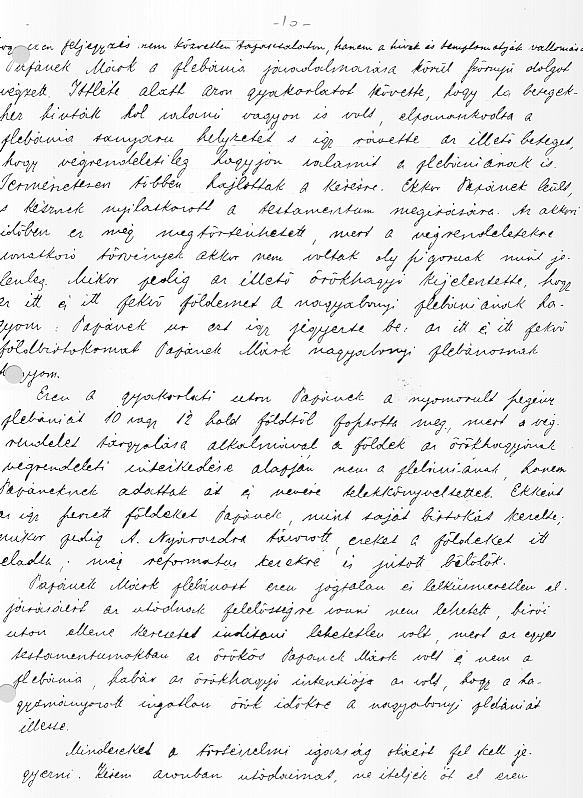 -10-
ezen feljegyzés nem közvetlen tapasztalaton, hanem a hívek és templomatyák vallomása
Papánek Márk a plébánia javadalmazása körül szörnyű dolgot
végzett. Ittléte alatt azon gyakorlatot követte, hogy ha betegek-
hez hívták hol valami vagyon is volt, elpanaszkodta a
plébánia sanyarú helyzetét s így rávette az illető beteget,
hogy végrendeletileg hagyjon valamit a plébániának is.
Természetesen többen hajlottak a kérésre. Ekkor Papánek leült,
s késznek nyilatkozott a testamentum megírására. Az akkori
időben ez még megtörténhetett, mert a végrendeletekre
vonatkozó törvények akkor nem voltak oly szigorúak mint je-
lenleg. Mikor pedig az illető örökhagyó kijelentette, hogy
az itt és itt fekvő földemet a nagyabonyi plébániának ha-
gyom: Papánek úr ezt így jegyezte be: az itt és itt fekvő
földbirtokomat Papánek Márk nagyabonyi plébánosnak
hagyom.
Ezen a gyakorlati úton Papánek a nyomorult szegény
plébániát 10 vagy 12 hold földtől fosztotta meg, mert a vég-
rendelet tárgyalása alkalmával a földek az örökhagyónak
végrendeleti intézkedése alapján nem a plébániának, hanem
Papáneknek adattak át és nevére telekkönyveltettek. Ekként
az így szerzett földeket Papánek, mint saját birtokát kezelte;
mikor pedig A. Nyárasdra távozott, ezeket a földeket itt
eladta; még református kezekre is jutott belőlük.
Papánek Márk plébánost ezen jogtalan és lelkiismeretlen el-
járásáért az utódnak felelősségre vonni nem lehetett, bírói
úton ellene keresetet indítani lehetetlen volt, mert az egyes
testamentumokban az örökös Papánek Márk volt és nem a
plébánia, habár az örökhagyó intentiója az volt, hogy a ha-
gyományozott ingatlan örök időkre a nagyabonyi plébániát
illesse.
Mindezeket a történelmi igazság okáért fel kell je-
gyezni. Kérem azonban utódaimat, ne ítéljék őt el ezen